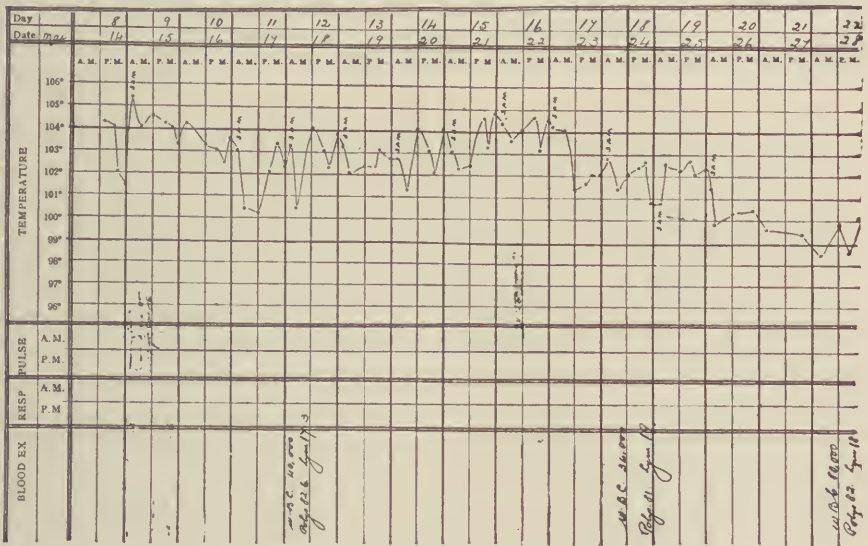 Day 8 9 10 11 12 13 14 15 16 17 18 19 20 21 22
Date Mar 14 15 16 17 18 19 20 21 22 23 24 25 26 27 28
A.M. P.M. A.M. P.M. A.M. P.M. A.M. P.M. A.M. P.M. A.M. P.M. A.M. P.M. A.M. P.M. A.M. P.M. A.M. P.M. A.M. P.M. A.M. P.M. A.M. P.M. A.M. P.M. A.M. P.M.
TEMPERATURE
106°
105°
104°
103°
102°
101°
100°
99°
98°
97°
96°
PULSE
A.M.
P.M.
RESP
A.M.
P.M
BLOOD EX
W.B.C. 40,000
Polys 82.6 Lym 17.3
W.B.C.
Polys 81 Lym 19
W.B.C.
Polys 82 Lym 18